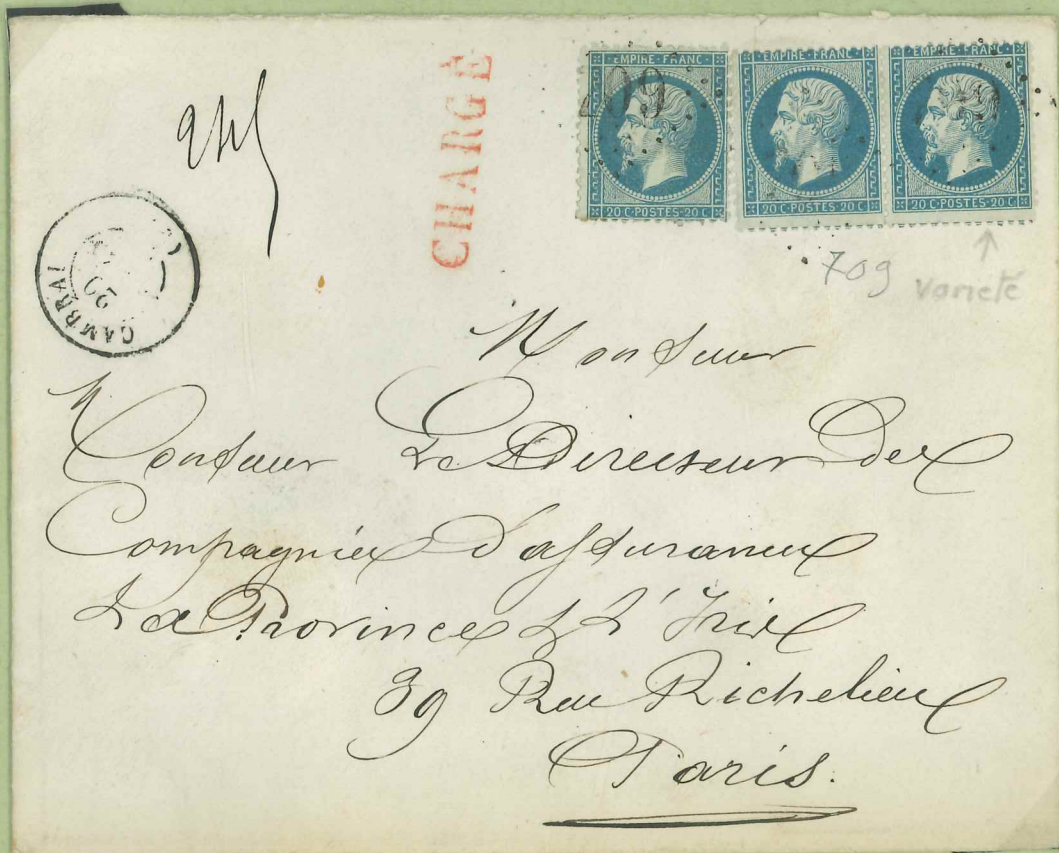 CHARGÉ
EMPIRE · FRANC
EMPIRE · FRANC
EMPIRE · FRANC
709
20 C · POSTES · 20 C
20 C · POSTES · 20 C
20 C · POSTES · 20 C
709
varieté
CAMBRAI
20
Monsieur
Monsieur Le Directeur des
Compagnies d'assurances
La Province & L'Iris
39 Rue Richelieu
Paris.